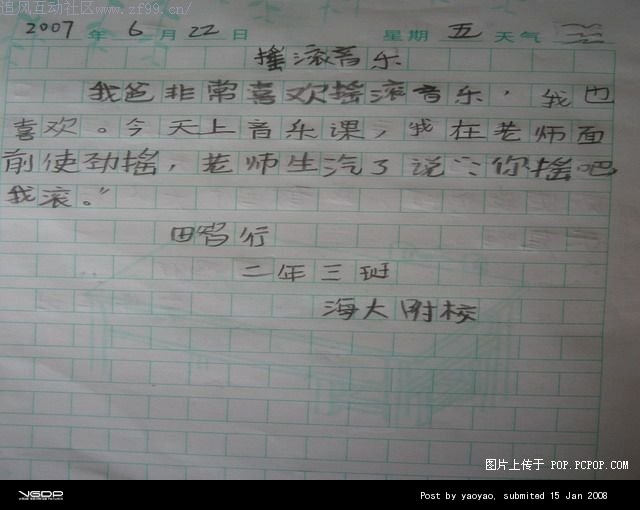 追风互动社区www.zf99.cn/
2007年6月22日 星期五 天气
摇滚音乐
我爸非常喜欢摇滚音乐，我也
喜欢。今天上音乐课，我在老师面
前使劲摇，老师生汽了说：“你摇吧
我滚。”
田智行
二年三班
海大附校
图片上传于 POP.PCPOP.COM
VGDP
Post by yaoyao, submited 15 Jan 2008